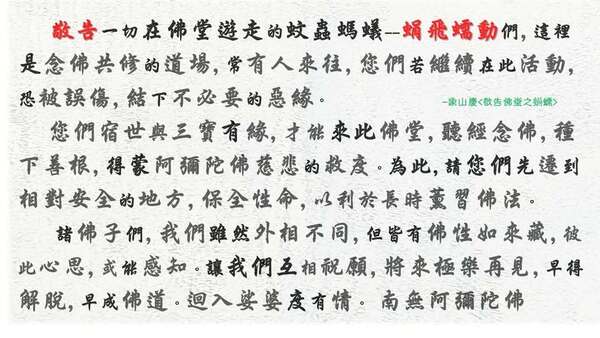 敬告一切在佛堂遊走的蚊蟲螞蟻---蜎飛蠕動們，這裡
是念佛共修的道場，常有人來往，您們若繼續在此活動，
恐被誤傷，結下不必要的惡緣。
-梁山慶<敬告佛堂之蜎蠕>
您們宿世與三寶有緣，才能來此佛堂，聽經念佛，種
下善根，得蒙阿彌陀佛慈悲的救度。為此，請您們先遷到
相對安全的地方，保全性命，以利於長時薰習佛法。
諸佛子們，我們雖然外相不同，但皆有佛性如來藏，彼
此心思，或能感知。讓我們互相祝願，將來極樂再見，早得
解脫，早成佛道。迴入娑婆度有情。南無阿彌陀佛